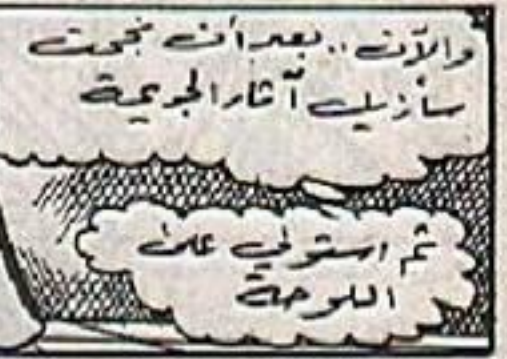 والآن .. بعد أن نجحت
سأزيل آثار الجريمة
ثم استولي على
اللوحة